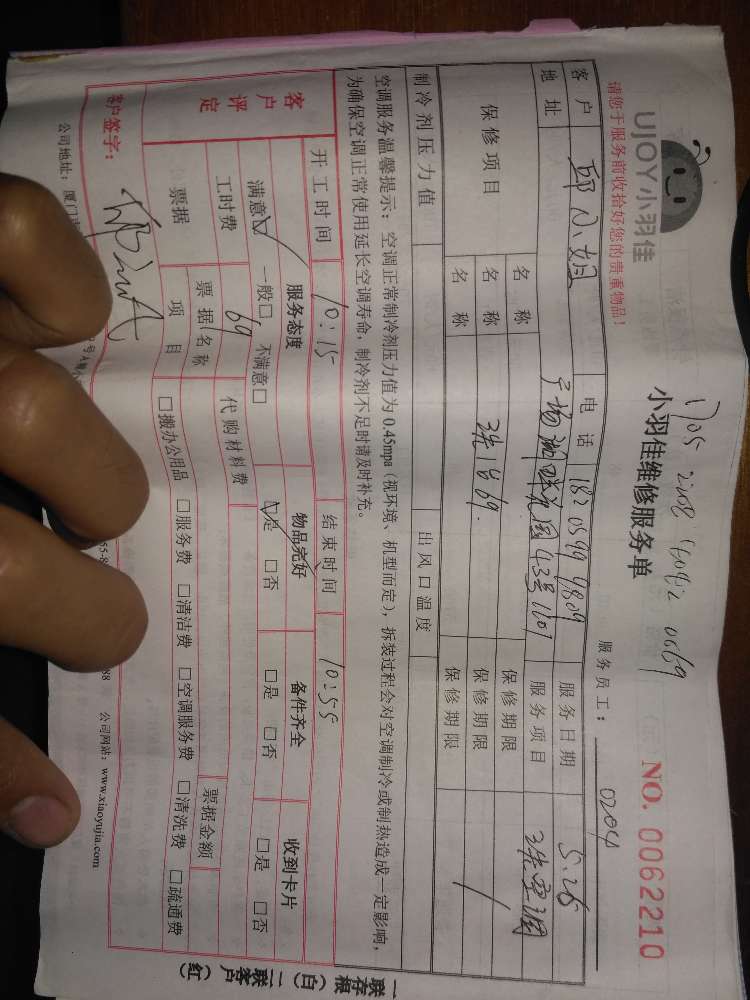 UJOY小羽佳
请您于服务前收拾好您的贵重物品！
小羽佳维修服务单
NO. 0062210
服务员工： 0204
客户 邱小姐 电话 服务日期 5.25
地址 43号1601 服务项目 洗空调
保修项目 名称 保修期限
名称 洗1台69. 保修期限
名称 保修期限
制冷剂压力值 出风口温度
空调服务温馨提示：空调正常制冷剂压力值为0.45mpa（视环境、机型而定），拆装过程会对空调制冷或制热造成一定影响，
为确保空调正常使用延长空调寿命，制冷剂不足时请及时补充。
开工时间 10:15 结束时间 10:55
客户评定 服务态度 物品完好 备件齐全 收到卡片
满意☑ 一般□ 不满意□ ☑是 □否 □是 □否 □是 □否
工时费 69 代购材料费 票据金额
票据 票据名称
项目 □搬办公用品 □服务费 □清洁费 □空调服务费 □清洗费 □疏通费
客户签字：
公司地址：厦门 公司网站：www.xiaoyujia.com
一联存根（白）二联客户（红）